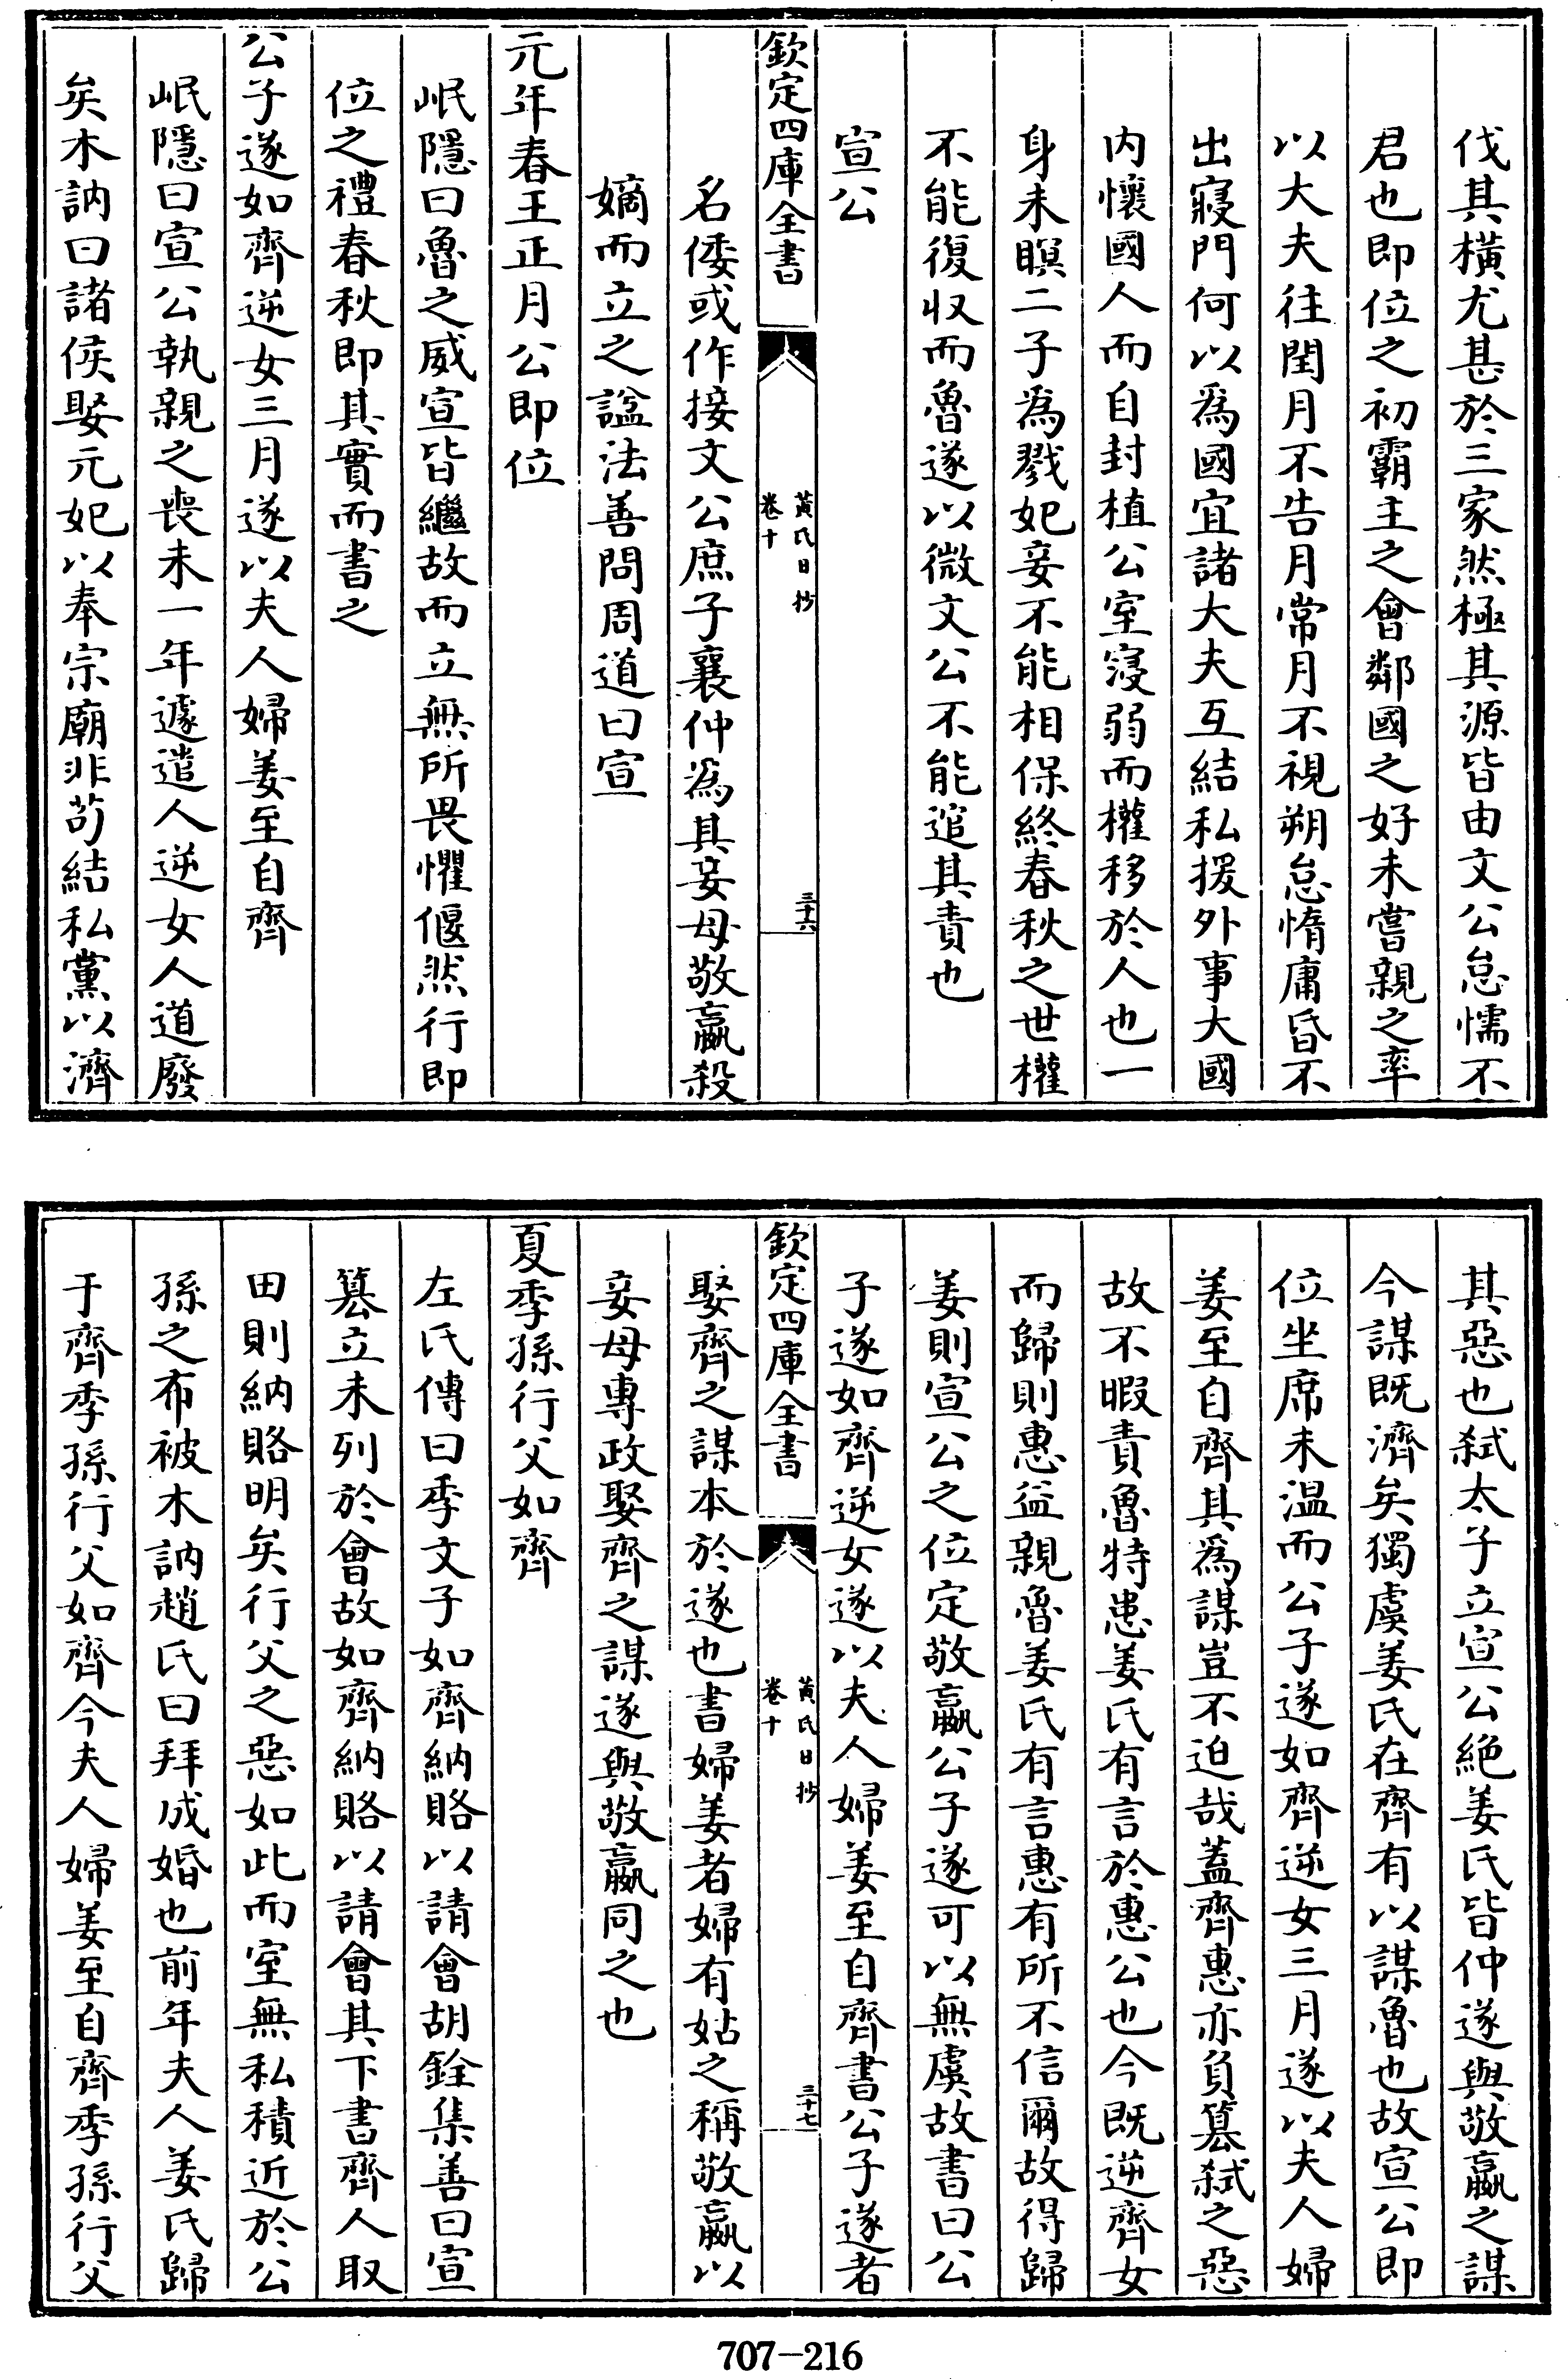 伐其橫尤甚於三家然極其源皆由文公怠懦不
君也即位之初霸主之會鄰國之好未嘗親之率
以大夫往閏月不告月常月不視朔怠惰庸昏不
出寢門何以為國宜諸大夫互結私援外事大國
內懷國人而自封植公室寖弱而權移於人也一
身未瞑二子為戮妃妾不能相保終春秋之世權
不能復收而魯遂以微文公不能逭其責也
宣公
欽定四庫全書
黃氏日抄
卷十
三十六
名倭或作接文公庶子襄仲為其妾母敬嬴殺
嫡而立之諡法善問周道曰宣
元年春王正月公即位
岷隱曰魯之威宣皆繼故而立無所畏懼偃然行即
位之禮春秋即其實而書之
公子遂如齊逆女三月遂以夫人婦姜至自齊
岷隱曰宣公執親之喪未一年遽遣人逆女人道廢
矣木訥曰諸侯娶元妃以奉宗廟非苟結私黨以濟
其惡也弒太子立宣公絕姜氏皆仲遂與敬嬴之謀
今謀既濟矣獨虞姜氏在齊有以謀魯也故宣公即
位坐席未温而公子遂如齊逆女三月遂以夫人婦
姜至自齊其為謀豈不迫哉蓋齊惠亦負篡弒之惡
故不暇責魯特患姜氏有言於惠公也今既逆齊女
而歸則惠益親魯姜氏有言惠有所不信爾故得歸
姜則宣公之位定敬嬴公子遂可以無虞故書曰公
子遂如齊逆女遂以夫人婦姜至自齊書公子遂者
欽定四庫全書
黃氏日抄
卷十
三十七
娶齊之謀本於遂也書婦姜者婦有姑之稱敬嬴以
妾母專政娶齊之謀遂與敬嬴同之也
夏季孫行父如齊
左氏傳曰季文子如齊納賂以請會胡銓集善曰宣
篡立未列於會故如齊納賂以請會其下書齊人取
田則納賂明矣行父之惡如此而室無私積近於公
孫之布被木訥趙氏曰拜成婚也前年夫人姜氏歸
于齊季孫行父如齊今夫人婦姜至自齊季孫行父
707-216